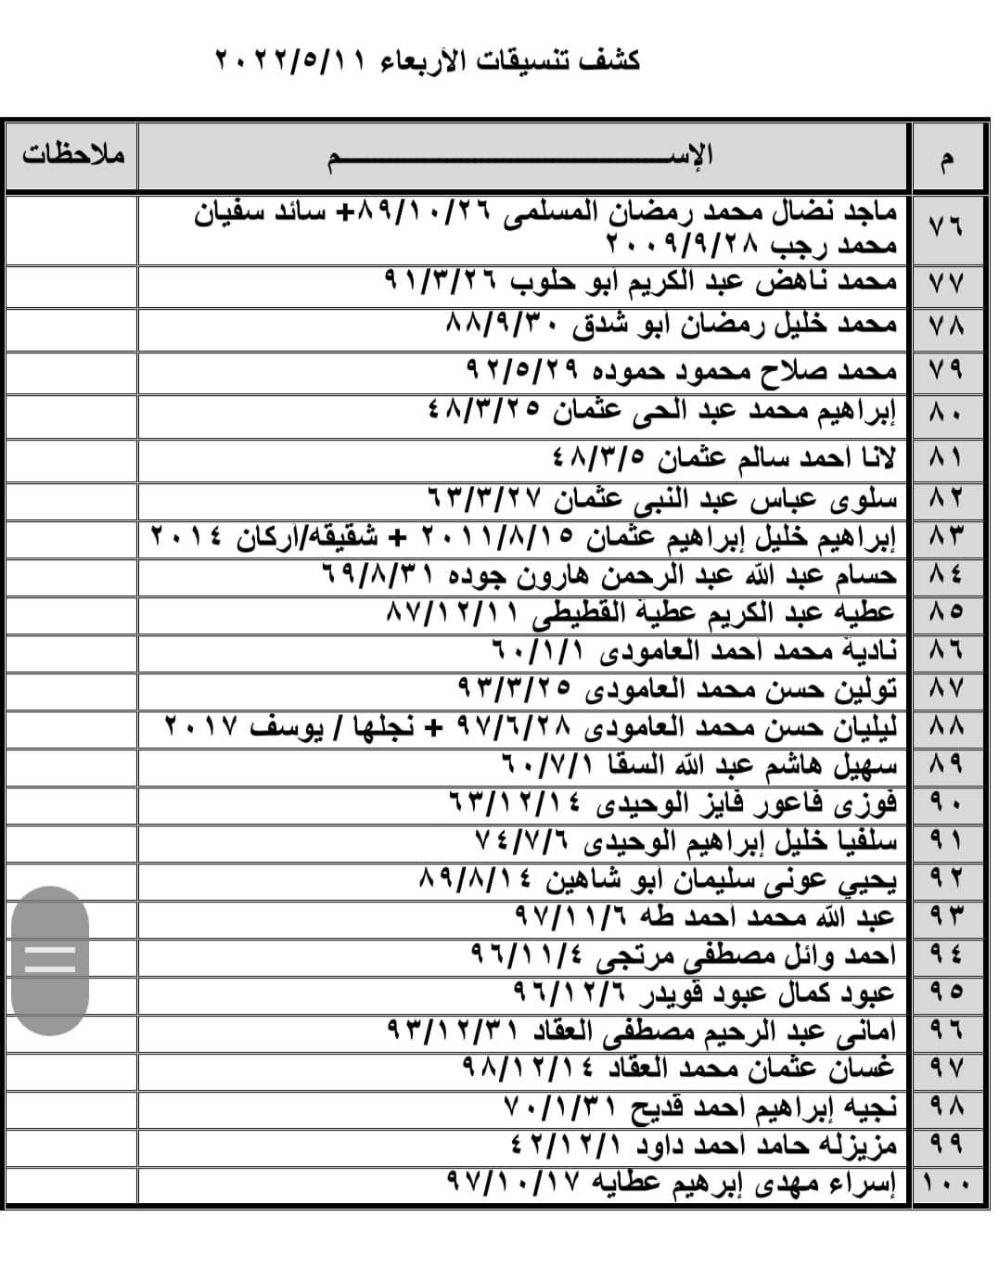 كشف تنسيقات الأربعاء ٢٠٢٢/٥/١١
م الإســـــــم ملاحظات
٧٦ ماجد نضال محمد رمضان المسلمى ٨٩/١٠/٢٦+ سائد سفيان
محمد رجب ٢٠٠٩/٩/٢٨
٧٧ محمد ناهض عبد الكريم أبو حلوب ٩١/٣/٢٦
٧٨ محمد خليل رمضان أبو شدق ٨٨/٩/٣٠
٧٩ محمد صلاح محمود حموده ٩٢/٥/٢٩
٨٠ إبراهيم محمد عبد الحى عثمان ٤٨/٣/٢٥
٨١ لانا أحمد سالم عثمان ٤٨/٣/٥
٨٢ سلوى عباس عبد النبى عثمان ٦٣/٣/٢٧
٨٣ إبراهيم خليل إبراهيم عثمان ٢٠١١/٨/١٥ + شقيقه/أركان ٢٠١٤
٨٤ حسام عبد الله عبد الرحمن هارون جوده ٦٩/٨/٣١
٨٥ عطيه عبد الكريم عطية القطيطى ٨٧/١٢/١١
٨٦ نادية محمد أحمد العامودى ٦٠/١/١
٨٧ تولين حسن محمد العامودى ٩٣/٣/٢٥
٨٨ ليليان حسن محمد العامودى ٩٧/٦/٢٨ + نجلها / يوسف ٢٠١٧
٨٩ سهيل هاشم عبد الله السقا ٦٠/٧/١
٩٠ فوزى فاعور فايز الوحيدى ٦٣/١٢/١٤
٩١ سلفيا خليل إبراهيم الوحيدى ٧٤/٧/٦
٩٢ يحيي عونى سليمان أبو شاهين ٨٩/٨/١٤
٩٣ عبد الله محمد أحمد طه ٩٧/١١/٦
٩٤ أحمد وائل مصطفى مرتجى ٩٦/١١/٤
٩٥ عبود كمال عبود قويدر ٩٦/١٢/٦
٩٦ أمانى عبد الرحيم مصطفى العقاد ٩٣/١٢/٣١
٩٧ غسان عثمان محمد العقاد ٩٨/١٢/١٤
٩٨ نجيه إبراهيم أحمد قديح ٧٠/١/٣١
٩٩ مزيزله حامد أحمد داود ٤٢/١٢/١
١٠٠ إسراء مهدى إبرهيم عطايه ٩٧/١٠/١٧